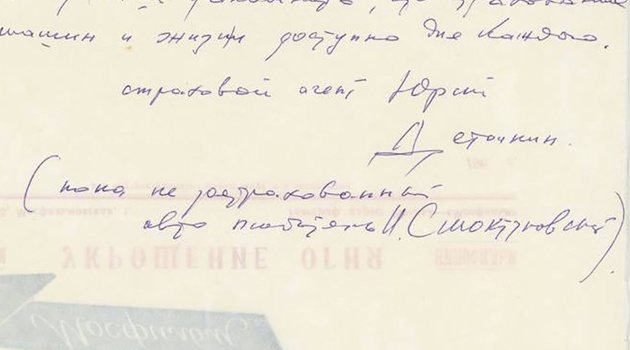 машин и жизни доступно для каждого.
страховой агент Юрий
Деточкин.
(пока не застрахованный
авто любитель И. Смоктуновский)
УКРОЩЕНИЕ ОГНЯ
Мосфильм